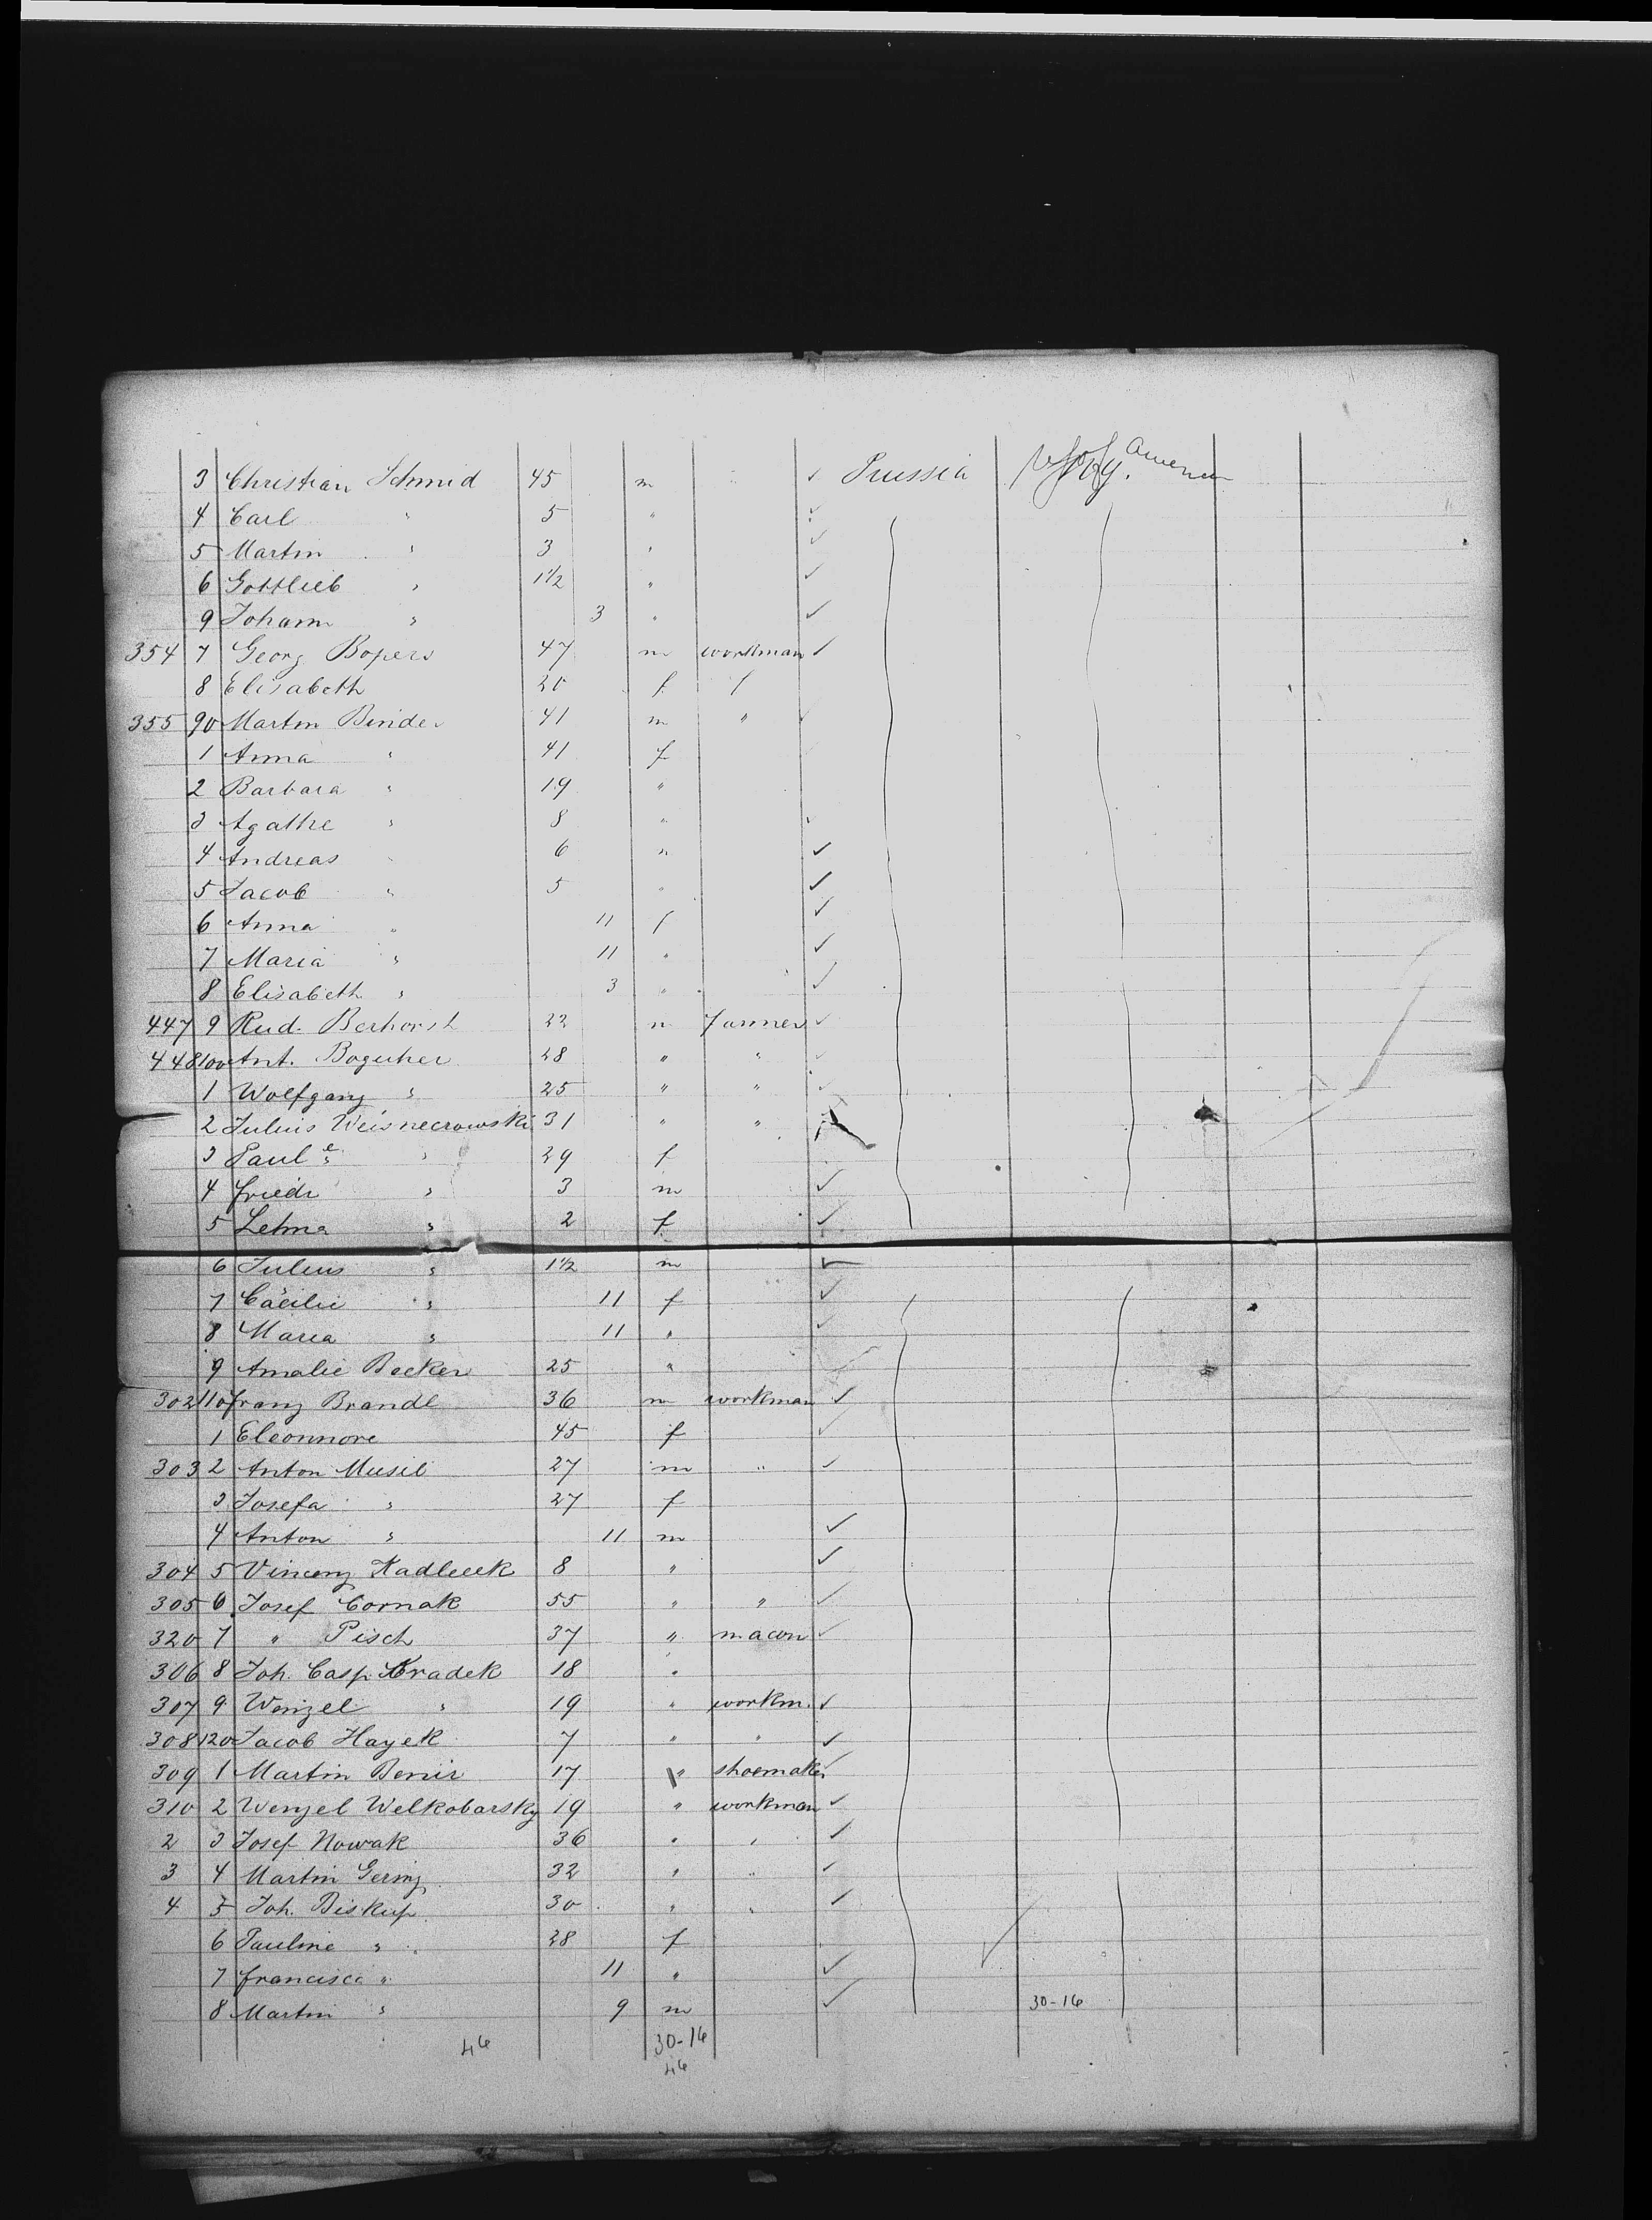 3 Christian Schmid 45 m " ✓ Prussia U S of America
4 Carl " 5 " ✓
5 Martin " 3 " ✓
6 Gottlieb " 1½ " ✓
9 Johann " 3 " ✓
354 7 Georg Bopers 47 m workman ✓
8 Elisabeth 20 f f
355 90 Martin Binder 41 m " ✓
1 Anna " 41 f
2 Barbara " 19 "
3 Agathe " 8 " ✓
4 Andreas " 6 " ✓
5 Jacob " 5 " ✓
6 Anna " 11 f ✓
7 Maria " 11 " ✓
8 Elisabeth " 3 " ✓
447 9 Rud. Berhorst 22 m farmer ✓
448 100 Ant. Boguher 28 " " ✓
1 Wolfgang " 25 " " ✓
2 Julius Weisnecrowski 31 " "
3 Paul e " 29 f
4 Friedr " 3 m ✓
5 Lelma " 2 f ✓
6 Julius " 1½ m ✓
7 Cäcilie " 11 f ✓
8 Maria " 11 " ✓
9 Amalie Becker 25 " ✓
302 110 Franz Brandl 36 m workman ✓
1 Eleonnore 45 f ✓
303 2 Anton Musil 27 m " ✓
3 Josefa " 27 f
4 Anton " 11 m ✓
304 5 Vincenz Kadlecek 8 " ✓
305 6 Josef Cornak 55 " " ✓
320 7 " Pisch 37 " macon ✓
306 8 Joh. Casp. Kradek 18 "
307 9 Wenzel " 19 " workm. ✓
308 120 Jacob Hayek 7 " " ✓
309 1 Martin Benir 17 " shoemaker ✓
310 2 Wenzel Welkobarsky 19 " workman ✓
2 3 Josef Nowak 36 " " ✓
3 4 Martin Gering 32 " " ✓
4 5 Joh. Biskup 30 " " ✓
6 Pauline " 28 f
7 Francisca " 11 " ✓
8 Martin " 9 m ✓ 30-16
46 30-16
46